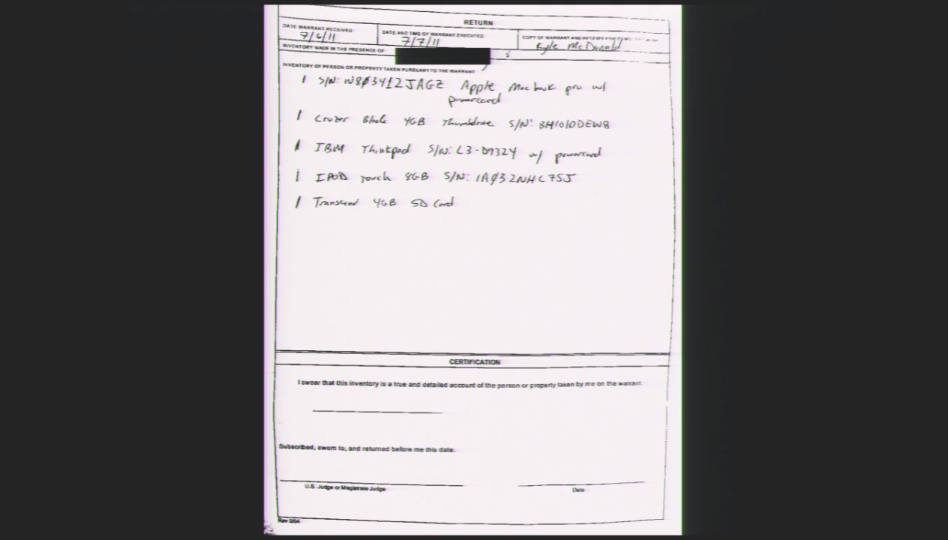 RETURN
DATE WARRANT RECEIVED
7/6/11
DATE AND TIME OF WARRANT EXECUTED
7/7/11
COPY OF WARRANT AND RECEIPT FOR
Kyle McDonald
INVENTORY MADE IN THE PRESENCE OF
INVENTORY OF PERSON OR PROPERTY TAKEN PURSUANT TO THE WARRANT
1 S/N: W8Ø3412JAGZ Apple Macbook pro w/
powercord
1 Cruzer Blade 4GB Thumbdrive S/N: BH1010DEWB
1 IBM Thinkpad S/N: L3-D9324 w/ powercord
1 IPOD touch 8GB S/N: 1AØ32NHC75J
1 Transcend 4GB SD Card
CERTIFICATION
I swear that this inventory is a true and detailed account of the person or property taken by me on the warrant.
Subscribed, sworn to, and returned before me this date.
U.S. Judge or Magistrate Judge
Date